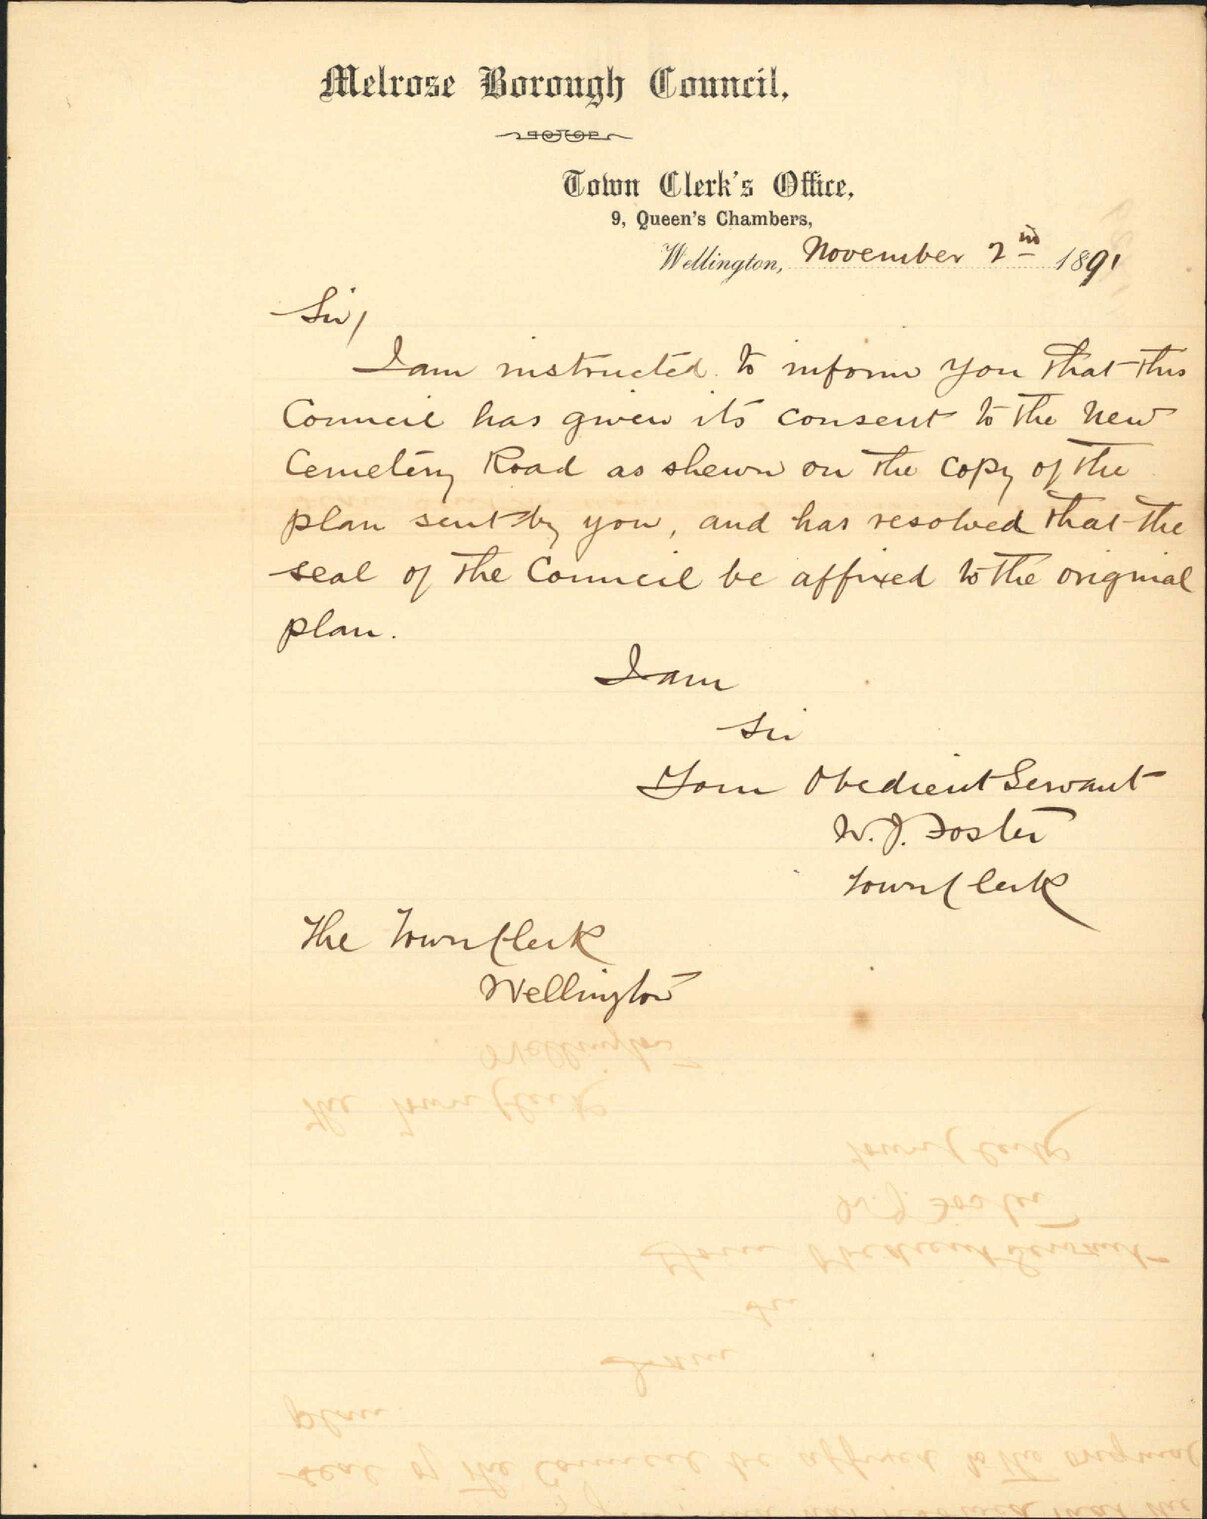 Melrose Borough Council.
Town Clerk's Office,
9, Queen's Chambers,
Wellington, November 2nd 1891
Sir,
I am instructed to inform you that this
Council has given its consent to the New
Cemetery Road as shewn on the copy of the
plan sent by you, and has resolved that the
seal of the Council be affixed to the original
plan.
I am
Sir
Your Obedient Servant
W. J. Foster
Town Clerk
The Town Clerk
Wellington